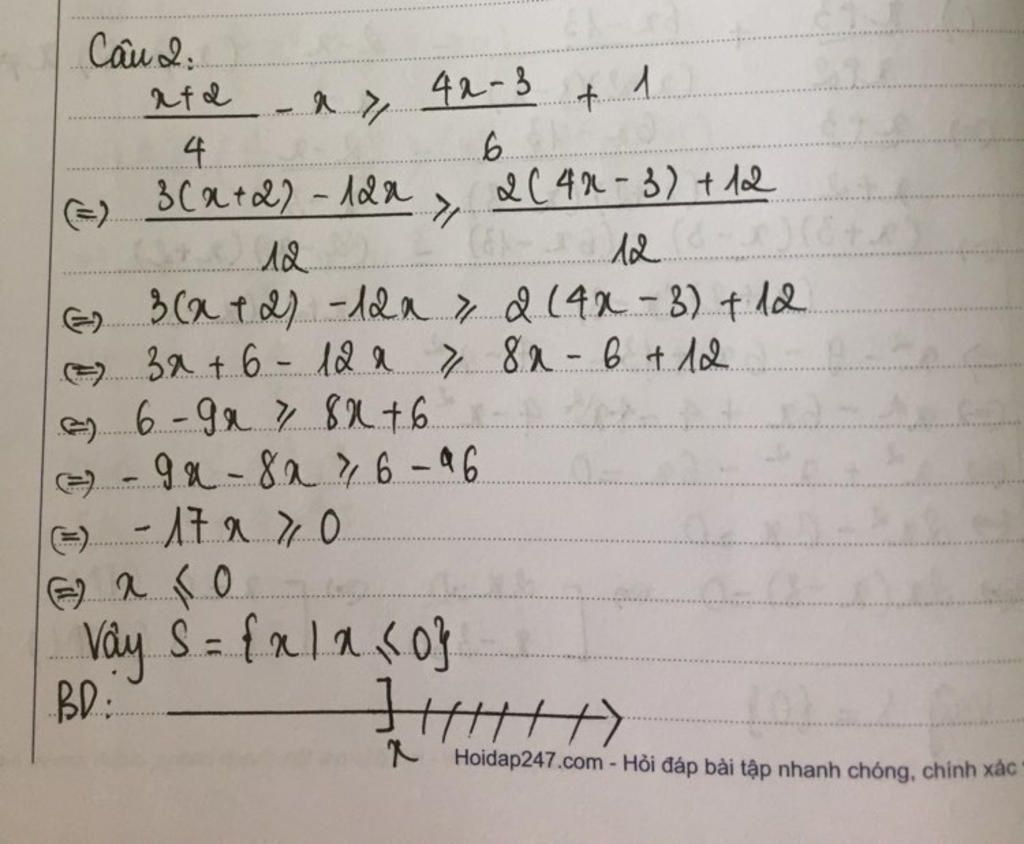 Câu 2:
x+2/4 - x ⩾ 4x-3/6 + 1
(=) 3(x+2) - 12x/12 ⩾ 2(4x-3) + 12/12
(=) 3(x+2) - 12x ⩾ 2(4x-3) + 12
(=) 3x + 6 - 12x ⩾ 8x - 6 + 12
(=) 6 - 9x ⩾ 8x + 6
(=) - 9x - 8x ⩾ 6 - 6
(=) - 17x ⩾ 0
(=) x ⩽ 0
Vậy S = {x | x ⩽ 0}
BD:
x
Hoidap247.com - Hỏi đáp bài tập nhanh chóng, chính xác